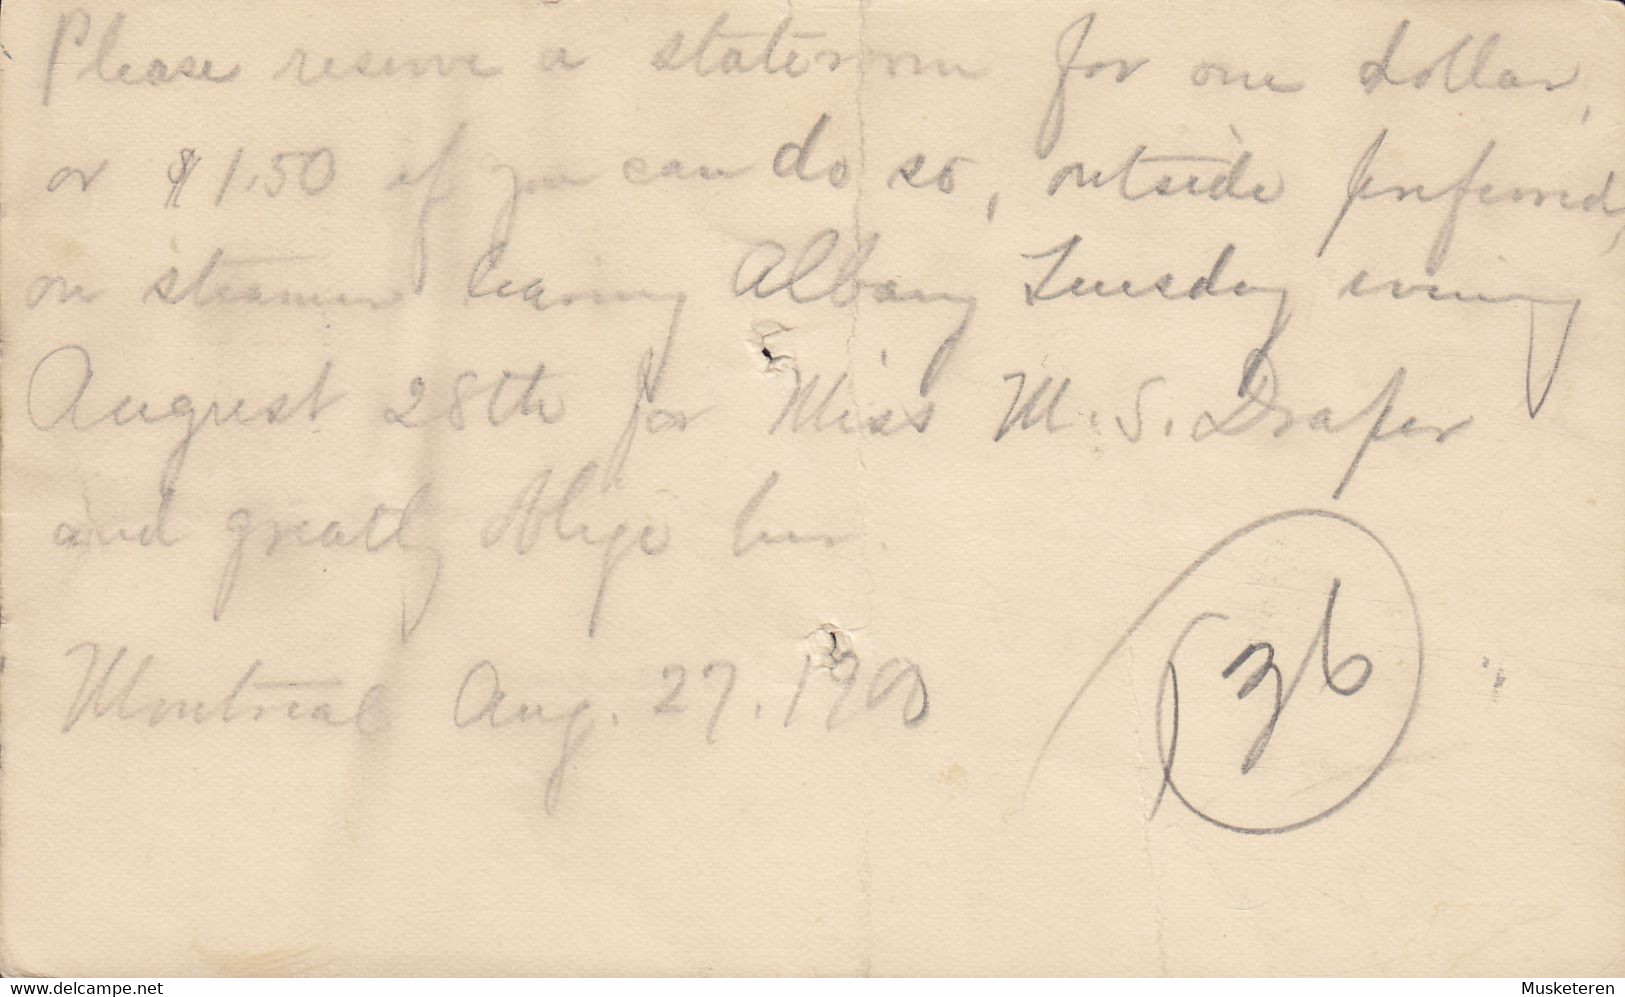 Please reserve a stateroom for one dollar,
or $1.50 if you can do so, outside preferred,
on steamer leaving Albany Tuesday evening
August 28th for Miss M. S. Draper
and greatly oblige her.
Montreal Aug. 27. 1900
36
www.delcampe.net
Musketeren